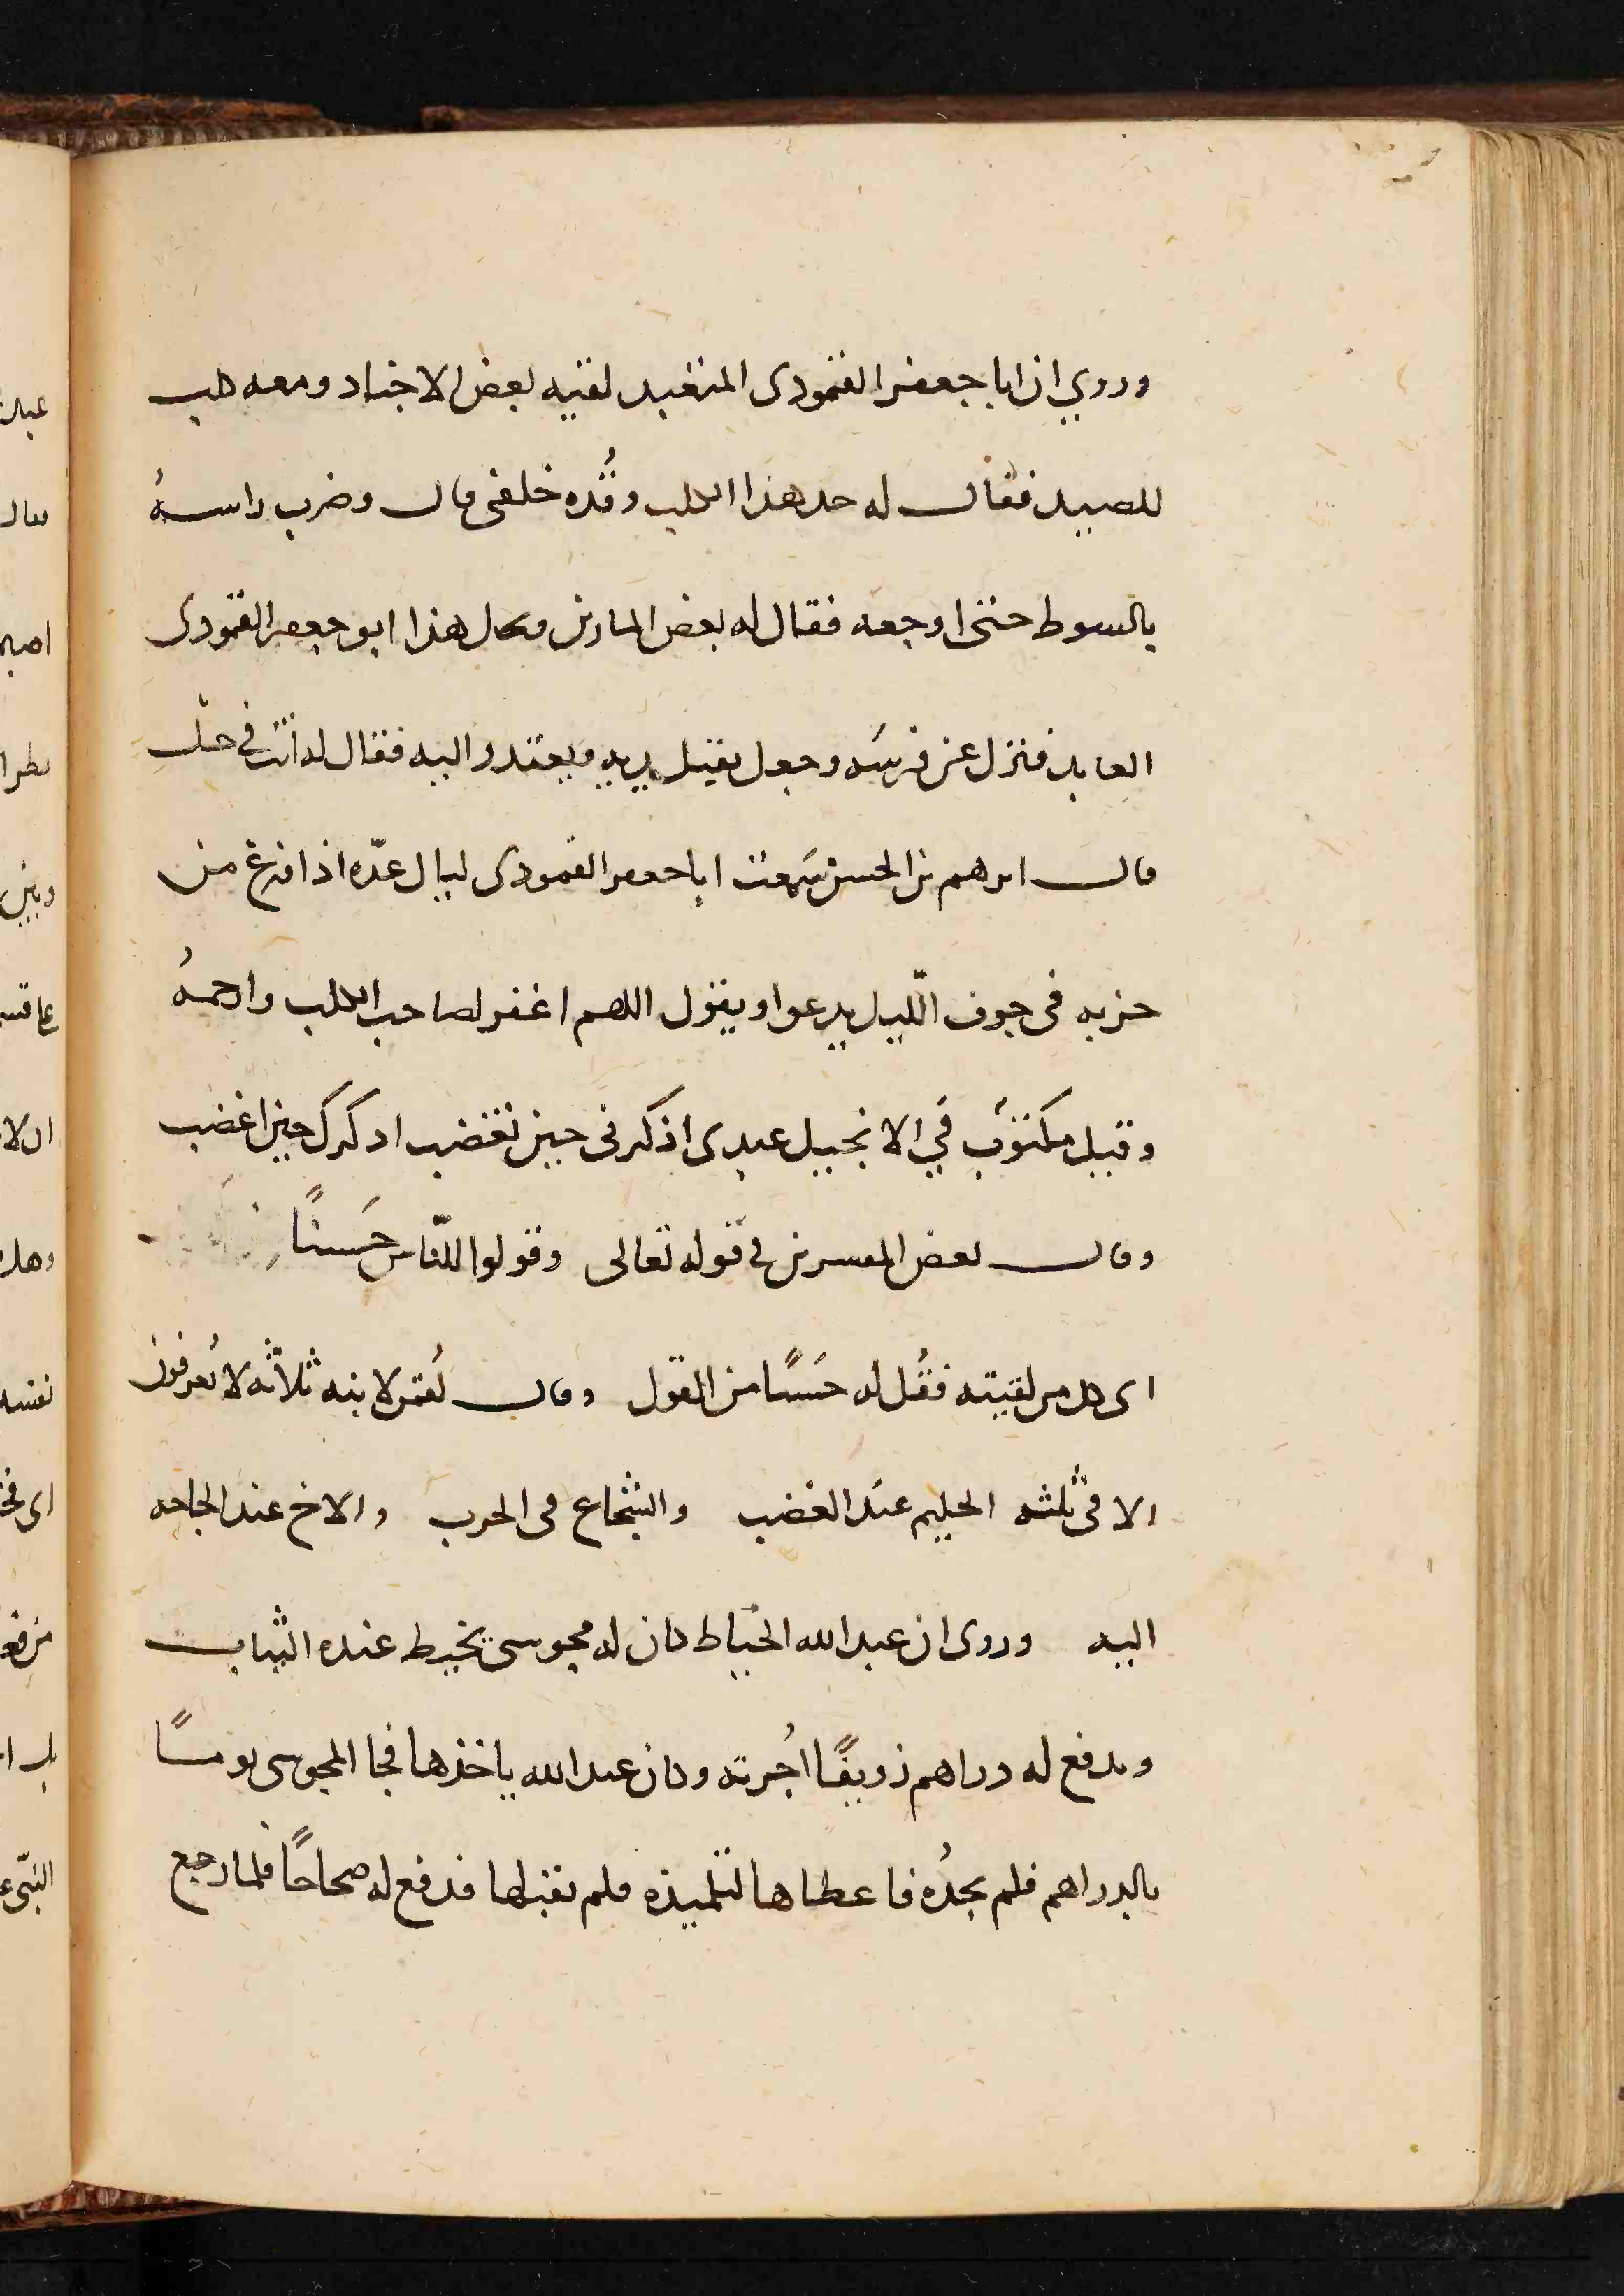 وروي ان ابا جعفر القمودى المتعبد لقيه بعض الاجناد ومعه كلب
للصيد فقال له خد هذا الكلب وقُده خلفى قال وضرب راسهُ
بالسوط حتى اوجعه فقال له بعض المارين وكان هذا ابو جعفر القمودى
العابد فنزل عن فرسَه وجعل يقبل يديه ويعتدر اليه فقال له انت في حل
قال ابرهيم بن الحسن سَمعت ابا جعفر القمودى ليال عدّه اذا فرغ من
حزبه فى جوف اللّيل يدعوا ويقول اللهم اغفر لصاحب الكلب وارحمهُ
وقيل مكتوب في الانجيل عبدى اذكرنى حين تغضب ادكرك حين اغضب
وقال بعض المفسرين فى قوله تعالى وقولوا للنّاس حَسنًا
اى كل من لقيته فقُل له حَسنًا من القول وقال لُقمن لابنه ثلاثه لا يُعرفون
الا فى ثلثه الحليم عند الغضب والشجاع فى الحرب والاخ عند الحاجه
اليه وروى ان عبد الله الخياط كان له مجوسى يخيط عنده الثياب
ويدفع له دراهم زويفًا اُجرته وكان عبد الله ياخذها فجا المجوسى يومًا
بالدراهم فلم يجدُه فاعطاها لتلميذه فلم يقبلها فدفع له صحاحًا فلما رجع